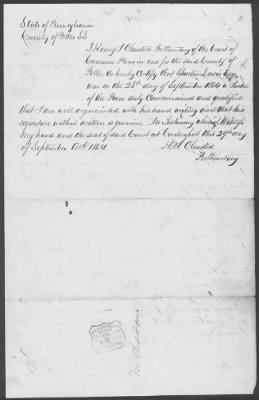 State of Pennsylvania
County of Potter SS
I Henry J Olmsted Prothonotary of the Court of
Common Pleas in and for the said County of
Potter do hereby Certify that
was on the 28th day of September 1864 a Justice
of the Peace duly Commissioned and qualified
that I am well acquainted with his hand writing and that his
signature within written is genuine. In Testimony whereof Witness
my hand and the seal of said Court at Coudersport this 29th day
of September A.D. 1864
Olmsted
Prothonotary